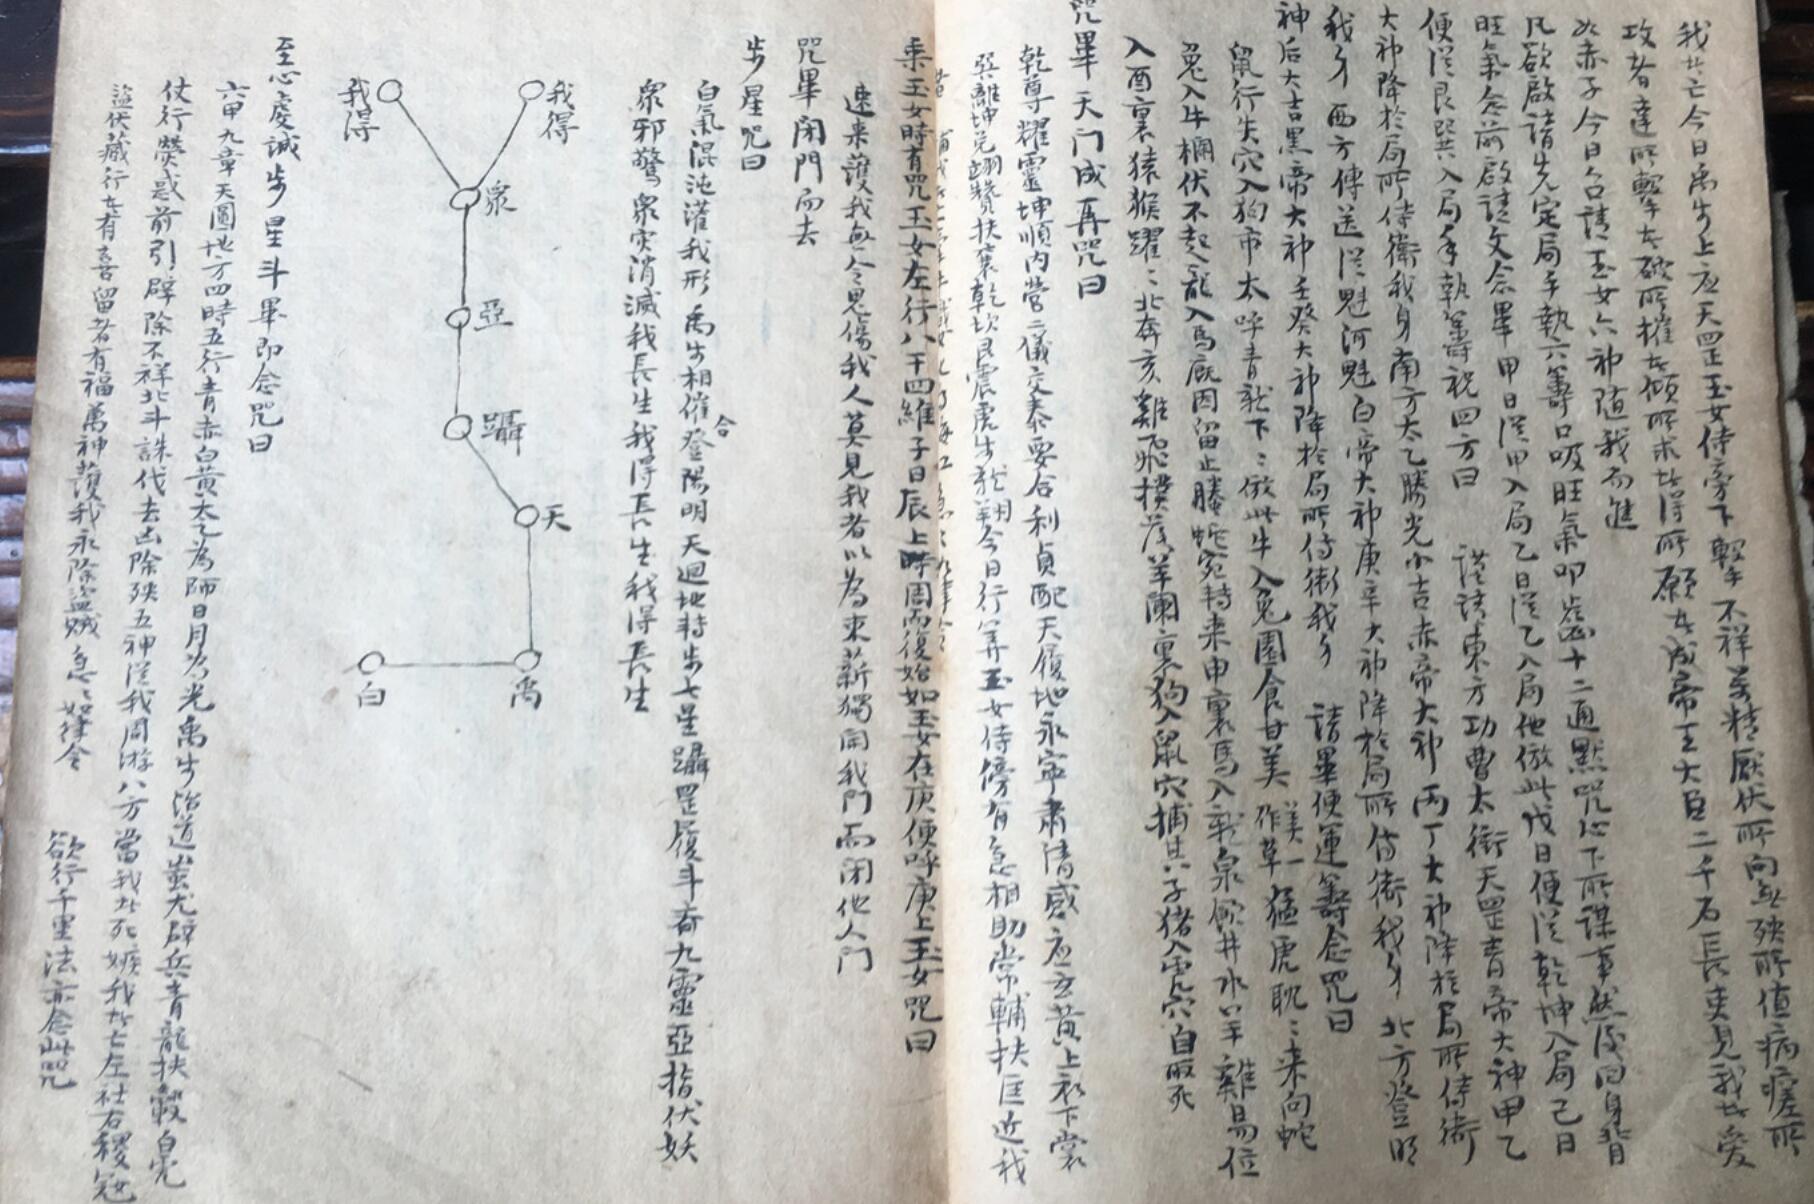 我者亡今日禹步上应天罡玉女侍旁下輕不祥萬精厭伏所向無殃所值病瘥所
攻者達所擊者破所摧者傾所求者得所願者成帝王大臣二千石長吏見我者爱
如赤子今日召請玉女六神随我而進
凡欲啟請先定局手執六籌口吸旺氣叩齒十二通點咒心下所謀事然後回身背
旺氣念前啟請文念畢甲日従甲入局乙日従乙入局他倣此戊日便従乾坤入局己日
便従艮巽入局手執籌祝四方曰 謹請東方功曹太衝天罡青帝大神甲乙
大神降於局所侍衛我身南方太乙勝光小吉赤帝大神丙丁大神降於局所侍衛
我身西方傳送従魁河魁白帝大神庚辛大神降於局所侍衛我身北方登明
神后大吉黑帝大神壬癸大神降於局所侍衛我身 請畢便運籌念咒曰
鼠行失穴入狗市太呼青龍下:倣此牛入兔園食甘美 美一作草 猛虎耽:来向蛇
兔入牛欄伏不起龍入馬厩因留止騰蛇宛转来申裏馬入龍泉飲井水羊雞易位
入酉裏猿猴躍:北奔亥雞飛撲落羊闌裏狗入鼠穴捕其子猪入虎穴自取死
咒畢天门成再咒曰
乾尊耀靈坤順内营二儀交泰要合利貞配天履地永寧肅清感应玄黄上衣下裳
巽離坤兑翊贊扶裏乾坎艮震虎步龍翔今日行筭玉女侍傍有急相助常輔扶匡近我
乘玉女時有咒玉女左行八干四維子日辰上時周而復始如玉女在庚便呼庚上玉女咒曰
速来護我無令鬼傷我人莫見我者以為束薪獨開我門而闭他人門
咒畢闭門而去
步星咒曰
白氣混沌灌我形禹步相催登陽明天迴地转步七星躡罡履斗齊九靈亞指伏妖
合
衆邪驚衆灾消滅我長生我得長生我得長生
我得
我得
衆
亞
躡
天
禹
白
至心虔誠步星斗畢即念咒曰
六甲九章天圓地方四時五行青赤白黄太乙為師日月为光禹步治道蚩尤辟兵青龍扶轂白虎
仗行熒惑前引辟除不祥北斗誅伐去凶除殃五神従我周游八方當我者死嫉我者亡左社右稷寇
盜伏藏行者有喜留者有福萬神護我永除盜賊急:如律令 欲行千里法亦念此咒